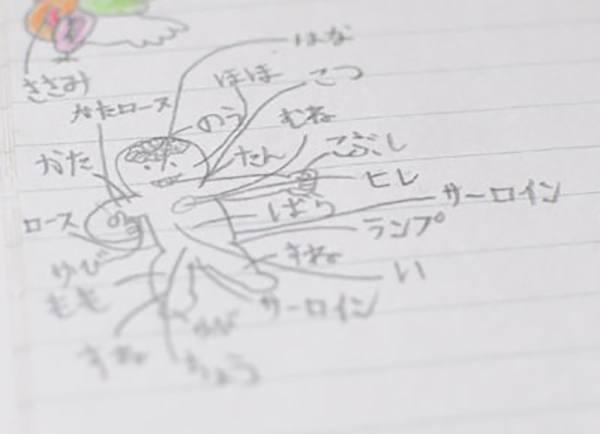 ささみ
はな
ほほ
こつ
かたロース
のう
むね
かた
たん
こぶし
ヒレ
サーロイン
ロース
ばら
ランプ
ゆび
すね
い
もも
サーロイン
ゆび
すね
ちょう